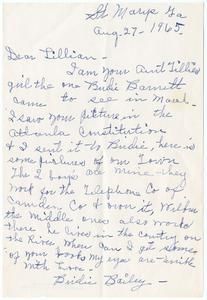 St Marys Ga
Aug. 27 - 1965
Dear Lillian -
I am your Aunt Tillies
girl the one Birdie Barnett
came to see in
I saw your picture in the
Atlanta Constitution
& I sent it to Birdie, here is
some pictures of our Town
The 2 boys are mine - they
work for the Telephone Co of
Camden Co & own it,
the middle ones also works
there he lives in the country on
the River When can I get some
of your books my eye are
with Love -
Birdie Bailey -